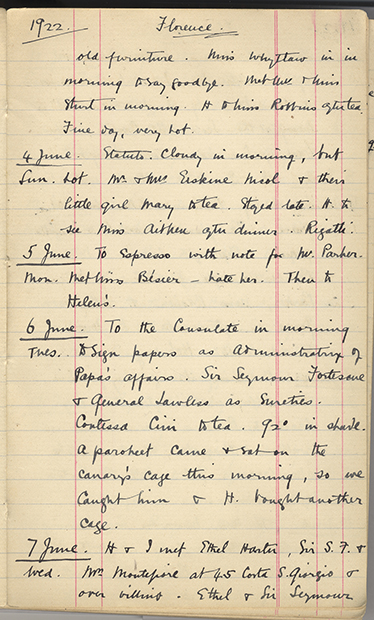 1922. Florence.
old furniture. Miss Whyttaw in in
morning to say goodbye. Met Mrs & Miss
in morning. H to Miss Robbins after tea.
Fine day, very hot.
4 June. Statuto. Cloudy in morning, but
Sun. hot. Mr & Mrs Erskine Nicol & their
little girl Mary to tea. Stayed late. H. to
see Miss Aitken after dinner. Rigatti.
5 June. To Espresso with note for Mr. Parker.
Mon. Met Miss Bésier – hate her. Then to
Helen's.
6 June. To the Consulate in morning
Tues. to sign papers as Administratrix of
Papa's affairs. Sir Seymour Fortescue
& General Lawless as Sureties.
Contessa Cini to tea. 92° in shade.
A parokeet came & sat on the
canary's cage this morning, so we
caught him & H. bought another
cage.
7 June. H & I met Ethel Harter, Sir S. F. &
Wed. Mrs Montefiore at 45 Costa S. Giorgio &
over villino. Ethel & Sir Seymour